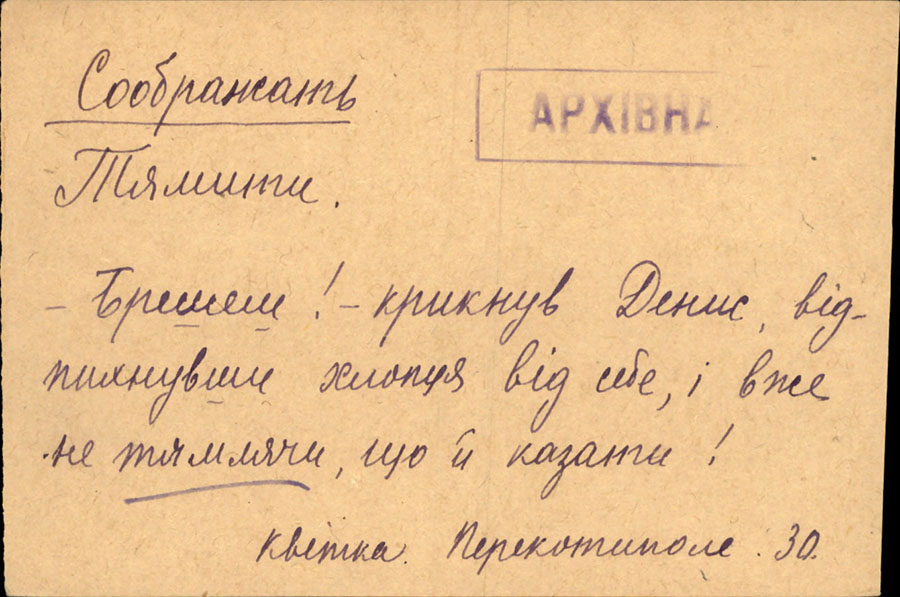 Соображать
АРХІВНА
Тямити.
– Брешеш! – крикнув Денис, від-
пихнувши хлопця від себе, і вже
не тямлячи, що й казати!
Квітка. Перекотиполе. 30.